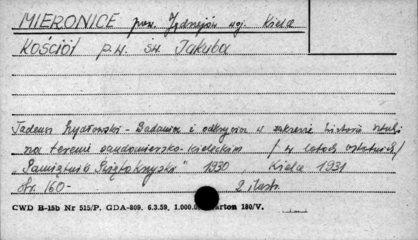 MIERONICE pow. Jędrzejów woj. Kielce
KOŚCIÓŁ p.w. św. Jakuba
Tadeusz Szydłowski - Badania i odkrycia w zakresie historii sztuki
na terenie sandomiersko-kieleckim / w latach ostatnich /
"Pamiętnik Świętokrzyski" 1930, Kielce 1931
Str. 160- 2 ilustr.
CWD B-15b Nr 515/P. GDA-809. 6.3.59, 1.000.00 karton 180/V.